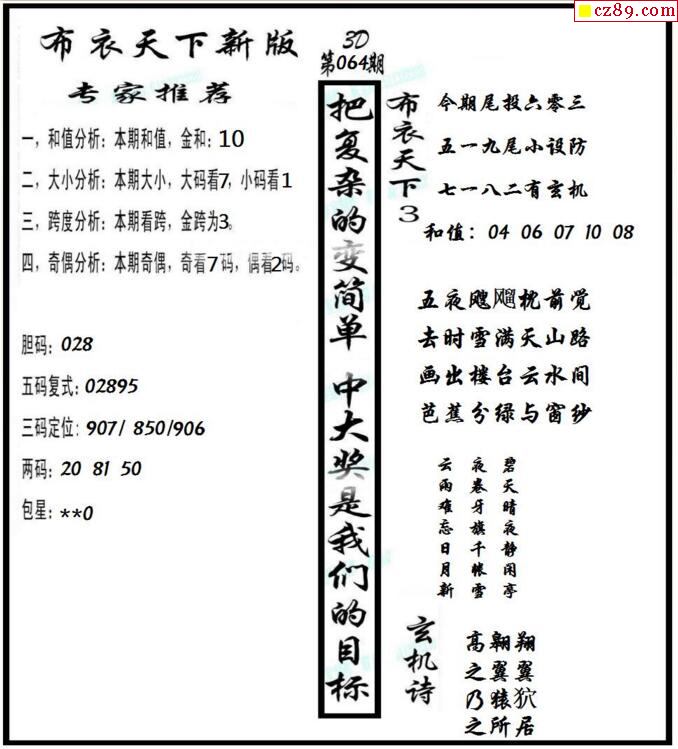 cz89.com
布衣天下新版
专家推荐
一，和值分析：本期和值，金和：10
二，大小分析：本期大小，大码看7，小码看1
三，跨度分析：本期看跨，金跨为3。
四，奇偶分析：本期奇偶，奇看7码，偶看2码。
胆码：028
五码复式：02895
三码定位：907/ 850/906
两码：20 81 50
包星：**0
3D
第064期
把复杂的变简单 中大奖是我们的目标
布衣天下3
今期尾投六零三
五一九尾小设防
七一八二有玄机
和值：04 06 07 10 08
五夜飕飗枕前觉
去时雪满天山路
画出楼台云水间
芭蕉分绿与窗纱
碧天晴夜静闲亭
夜卷牙旗千帐雪
云雨难忘日月新
玄机诗
高翱翔
之翼翼
乃猿狖
之所居